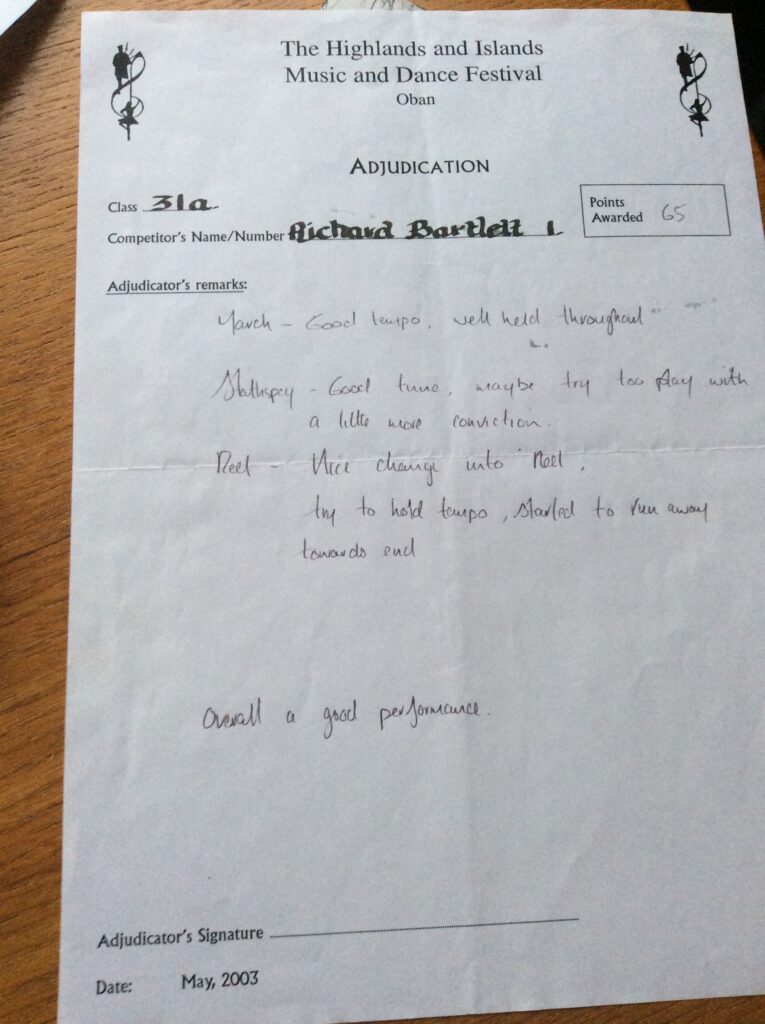 The Highlands and Islands
Music and Dance Festival
Oban
ADJUDICATION
Class 31a
Points
Awarded 65
Competitor's Name/Number Richard Bartlett 1
Adjudicator's remarks:
March - Good tempo, well held throughout
Strathspey - Good tune, maybe try too play with
a little more conviction.
Reel - Nice change into Reel,
try to hold tempo, started to run away
towards end
Overall a good performance.
Adjudicator's Signature
Date: May, 2003